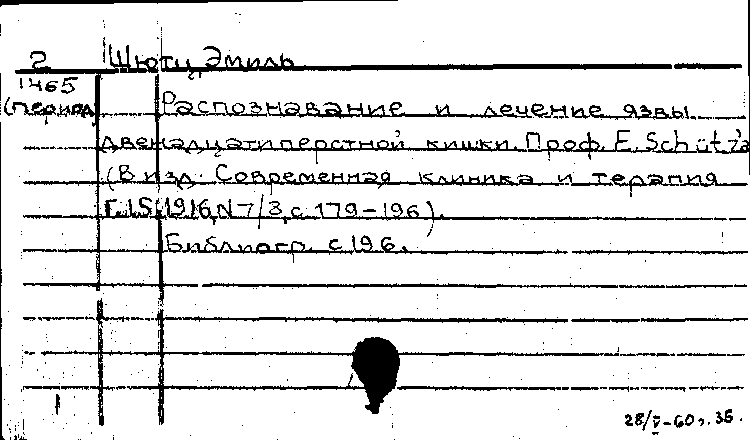 2 Шютц, Эмиль
1465
(период) Распознавание и лечение язвы
двенадцатиперстной кишки. Проф. E. Schütz'a
(В изд. Современная клиника и терапия
1916, N 7/8, с. 179-196).
Библиогр. с. 196.
28/V-60г.